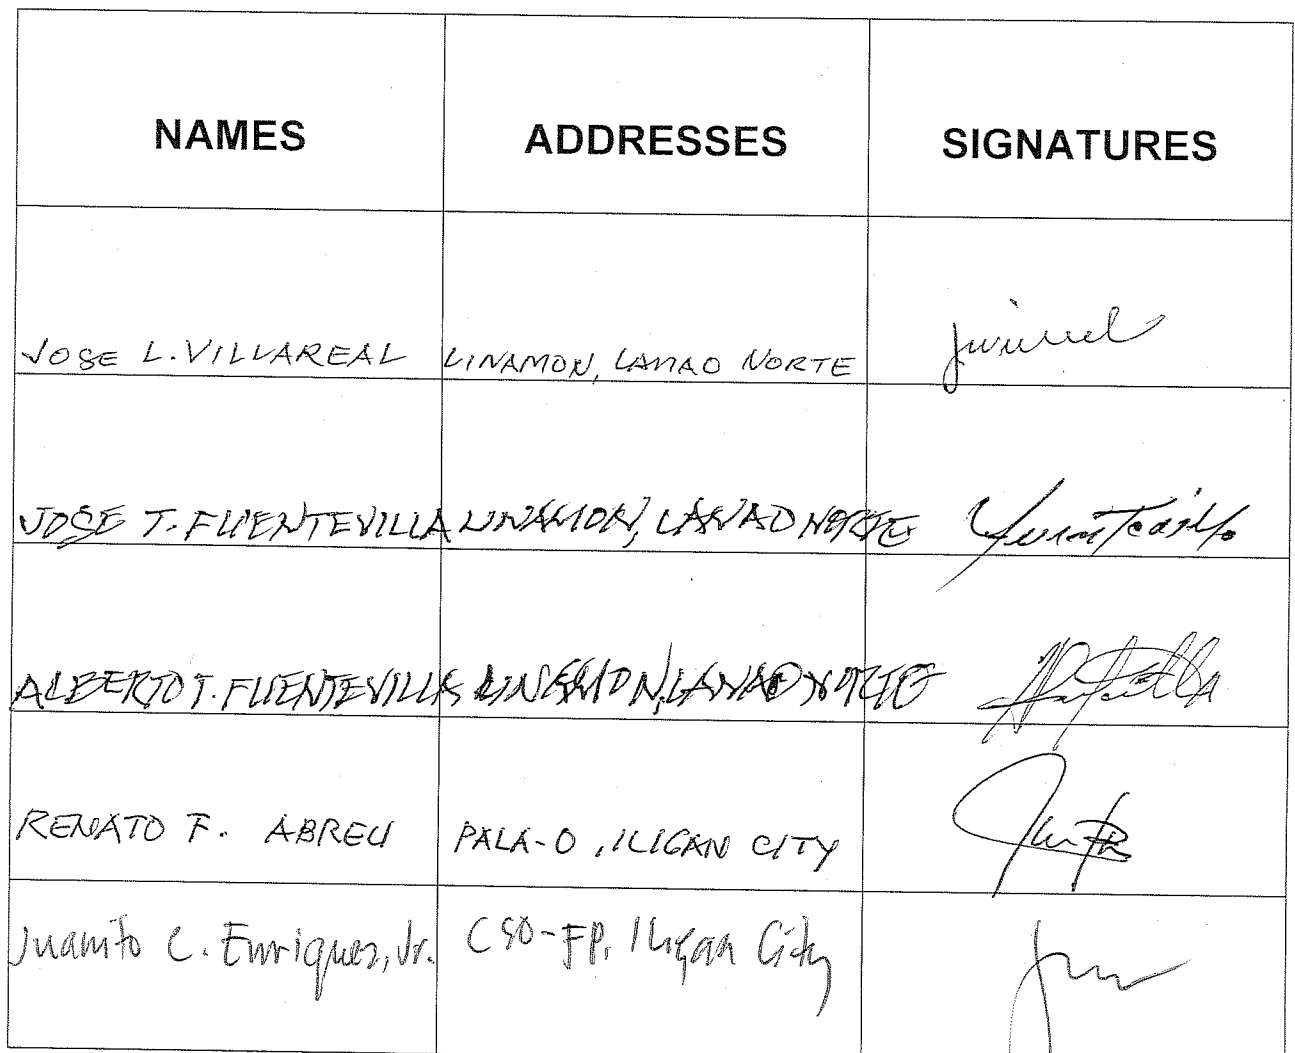 NAMES ADDRESSES SIGNATURES
JOSE L. VILLAREAL LINAMON, LANAO NORTE
JOSE T. FUENTEVILLA LINAMON, LANAO NORTE
ALBERTO T. FUENTEVILLA LINAMON, LANAO NORTE
RENATO F. ABREU PALA-O, ILIGAN CITY
Juanito C. Enriquez, Jr. CSO-FP, Iligan City